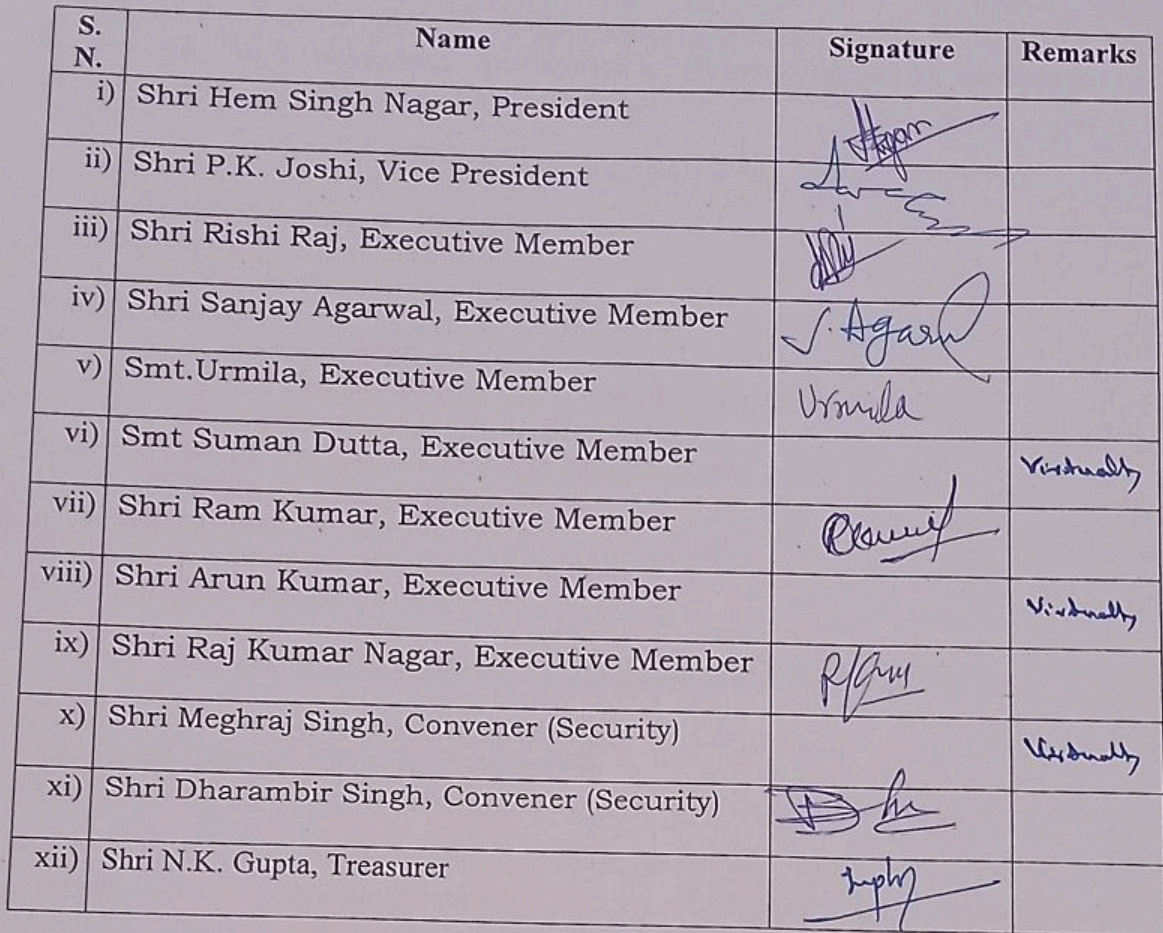 S. N. Name Signature Remarks
i) Shri Hem Singh Nagar, President
ii) Shri P.K. Joshi, Vice President
iii) Shri Rishi Raj, Executive Member
iv) Shri Sanjay Agarwal, Executive Member S. Agarwal
v) Smt.Urmila, Executive Member Urmila
vi) Smt Suman Dutta, Executive Member Virtually
vii) Shri Ram Kumar, Executive Member
viii) Shri Arun Kumar, Executive Member Virtually
ix) Shri Raj Kumar Nagar, Executive Member
x) Shri Meghraj Singh, Convener (Security) Virtually
xi) Shri Dharambir Singh, Convener (Security)
xii) Shri N.K. Gupta, Treasurer